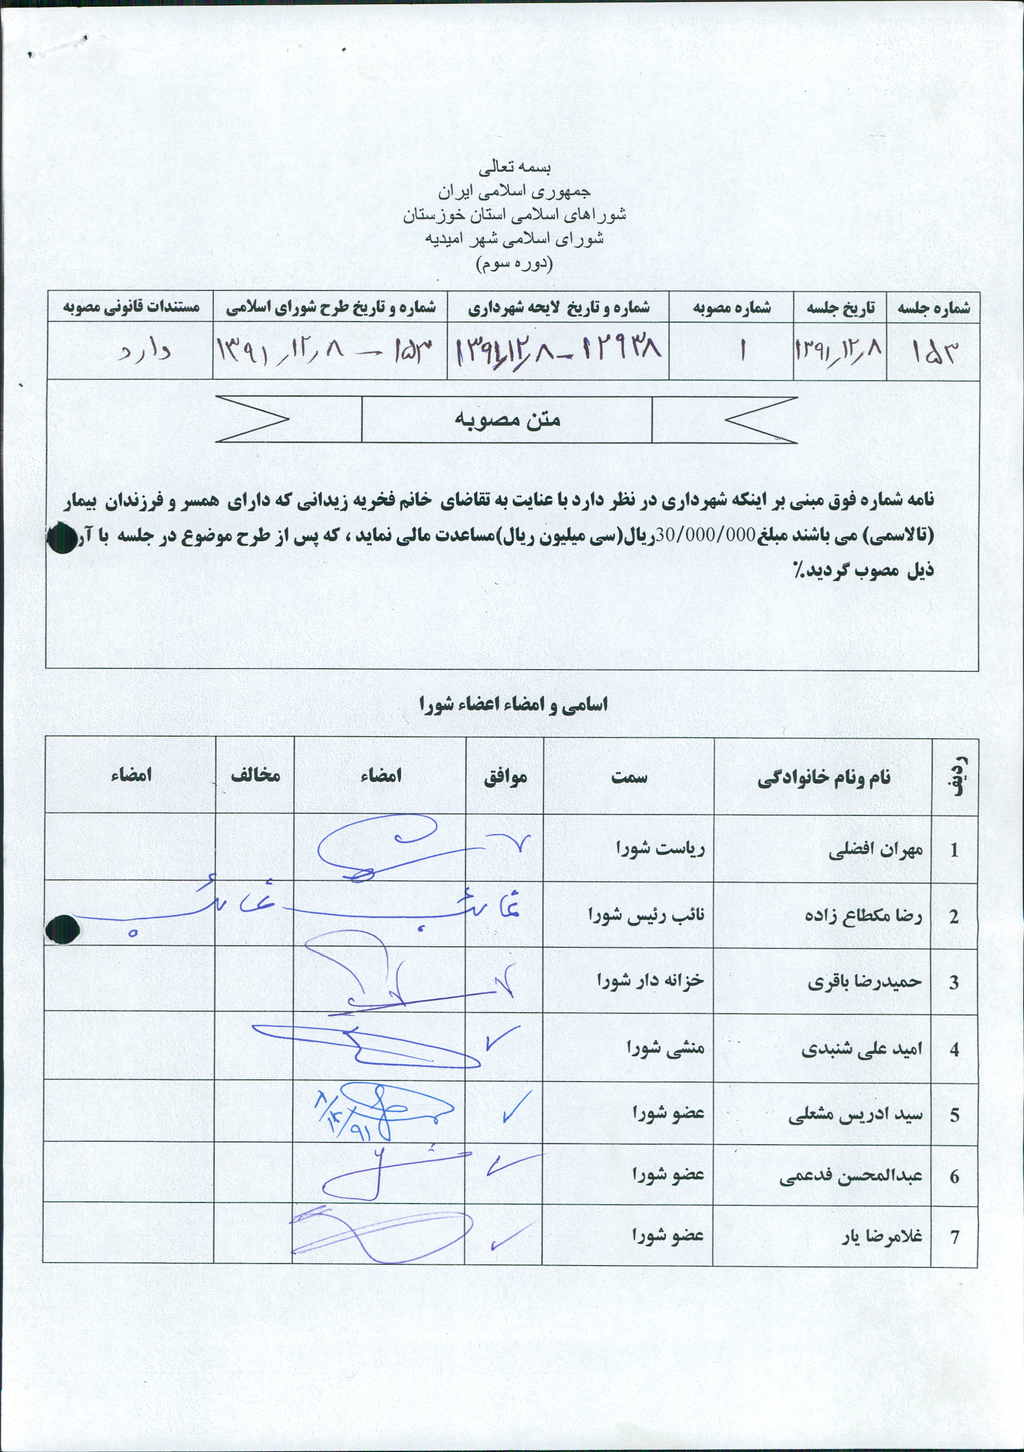 بسمه تعالی
جمهوری اسلامی ایران
شوراهای اسلامی استان خوزستان
شورای اسلامی شهر امیدیه
(دوره سوم)
شماره جلسه تاریخ جلسه شماره مصوبه شماره و تاریخ لایحه شهرداری شماره و تاریخ طرح شورای اسلامی مستندات قانونی مصوبه
۱۵۳ ۱۳۹۱/۱۲/۸ ۱ ۱۲۹۳۸ - ۱۳۹۱/۱۲/۸ ۱۵۳ - ۱۳۹۱/۱۲/۸ دارد
متن مصوبه
نامه شماره فوق مبنی بر اینکه شهرداری در نظر دارد با عنایت به تقاضای خانم فخریه زیدانی که دارای همسر و فرزندان بیمار
(تالاسمی) می باشند مبلغ30/000/000ریال(سی میلیون ریال)مساعدت مالی نماید ، که پس از طرح موضوع در جلسه با
ذیل مصوب گردید.٪
اسامی و امضاء اعضاء شورا
ردیف نام ونام خانوادگی سمت موافق امضاء مخالف امضاء
1 مهران افضلی ریاست شورا
2 رضا مکطاع زاده نائب رئیس شورا غائب غائب
3 حمیدرضا باقری خزانه دار شورا
4 امید علی شنبدی منشی شورا
5 سید ادریس مشعلی عضو شورا ۹۱/۱۲/۸
6 عبدالمحسن فدعمی عضو شورا
7 غلامرضا یار عضو شورا